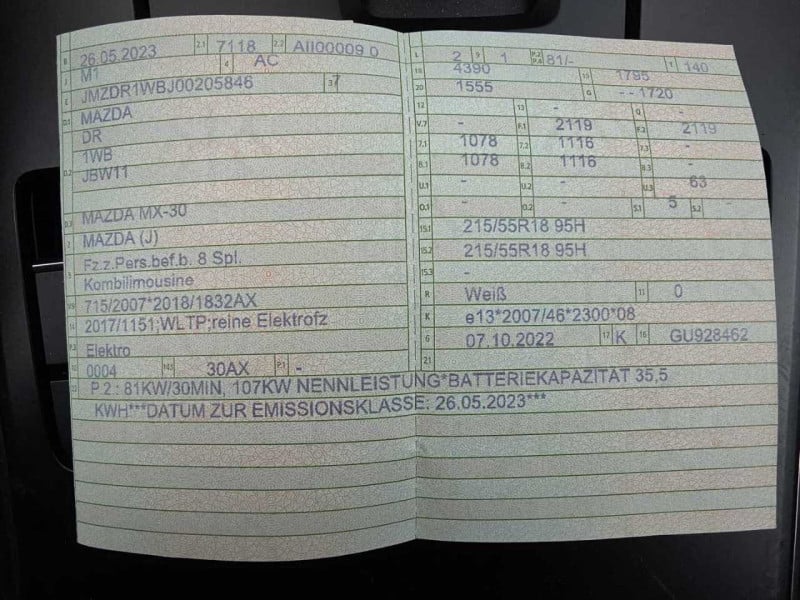 B 26.05.2023 2.1 7118 2.2 AII00009 0
J M1 4 AC
E JMZDR1WBJ00205846 3 7
D.1 MAZDA
DR
D.2 1WB
JBW11
D.3 MAZDA MX-30
2 MAZDA (J)
5 Fz.z.Pers.bef.b. 8 Spl.
Kombilimousine
V.9 715/2007*2018/1832AX
14 2017/1151;WLTP;reine Elektrofz
P.3 Elektro
10 0004 14.1 30AX P.1 -
22 P.2 : 81KW/30MIN, 107KW NENNLEISTUNG*BATTERIEKAPAZITÄT 35,5
KWH***DATUM ZUR EMISSIONSKLASSE: 26.05.2023***
L 2 9 1 P.2 P.4 81/- T 140
18 4390 19 1795
20 1555 G --1720
12 - 13 - Q -
V.7 - F.1 2119 F.2 2119
7.1 1078 7.2 1116 7.3 -
8.1 1078 8.2 1116 8.3 -
U.1 - U.2 - U.3 63
O.1 - O.2 - S.1 5 S.2 -
15.1 215/55R18 95H
15.2 215/55R18 95H
15.3 -
R Weiß 11 0
K e13*2007/46*2300*08
6 07.10.2022 17 K 16 GU928462
21